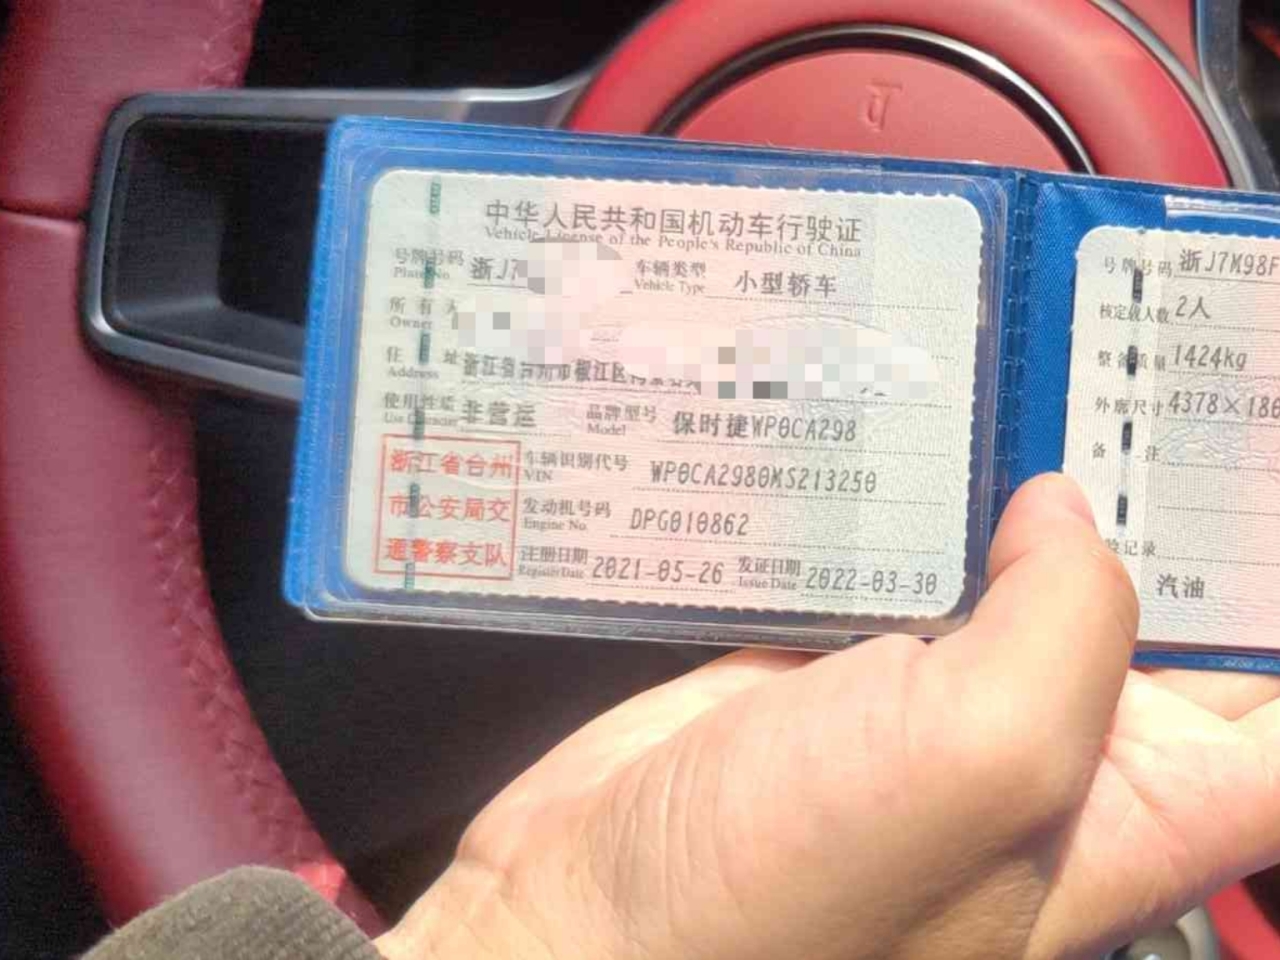 中华人民共和国机动车行驶证
Vehicle License of the People's Republic of China
号牌号码 浙J7 车辆类型 小型轿车
Plate No. Vehicle Type
所有人
Owner
住址 浙江省台州市椒江区
Address
使用性质 非营运 品牌型号 保时捷WP0CA298
Use Character Model
浙江省台州
市公安局交
通警察支队
车辆识别代号 WP0CA2980MS213250
VIN
发动机号码 DPG010862
Engine No.
注册日期 2021-05-26 发证日期 2022-03-30
Register Date Issue Date
号牌号码 浙J7M98F
核定载人数 2人
整备质量 1424kg
外廓尺寸 4378×186
备注
验记录
汽油